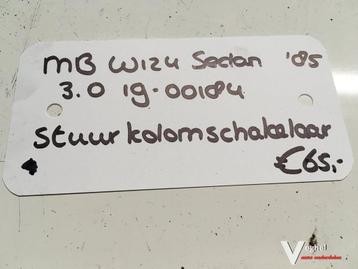 MB W124 Sedan '85
3.0 19-00184
Stuurkolomschakelaar
€65,-